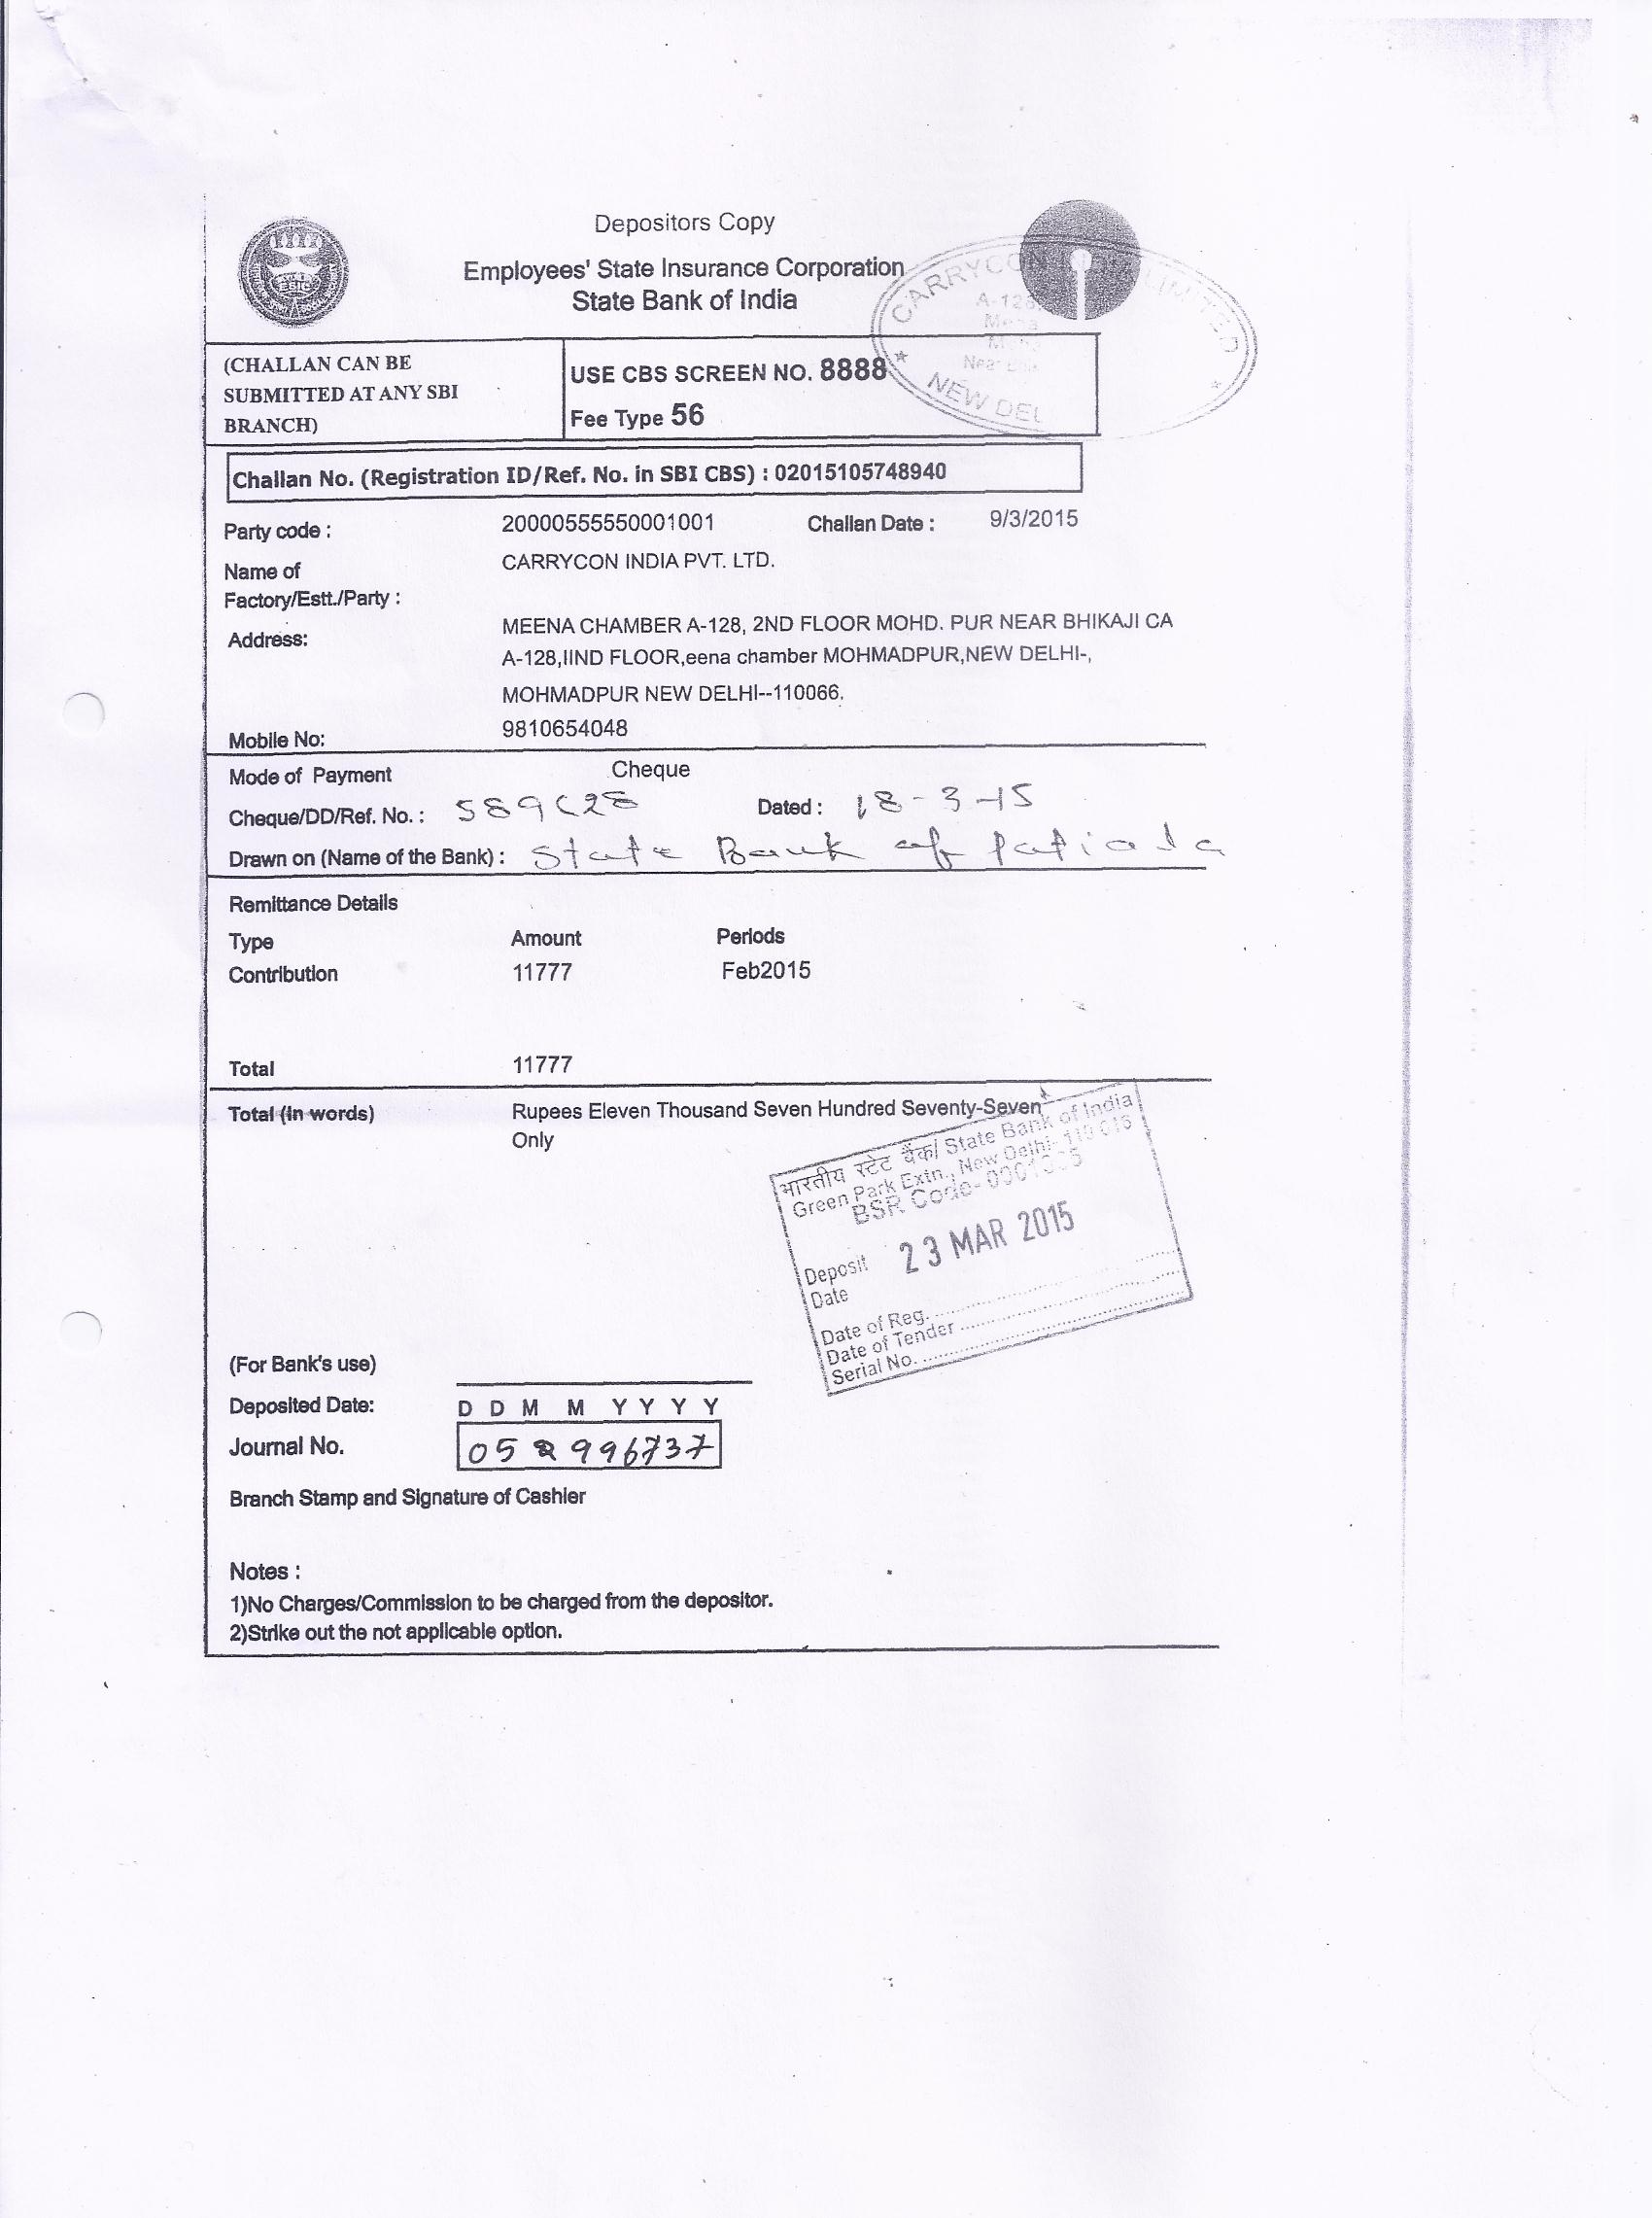 Depositors Copy
Employees' State Insurance Corporation
State Bank of India
ESIC
CARRYCON LIMITED
A-128
NEW DEL
(CHALLAN CAN BE
SUBMITTED AT ANY SBI
BRANCH)
USE CBS SCREEN NO. 8888
Fee Type 56
Challan No. (Registration ID/Ref. No. in SBI CBS) : 02015105748940
Party code : 20000555550001001 Challan Date : 9/3/2015
Name of CARRYCON INDIA PVT. LTD.
Factory/Estt./Party :
Address: MEENA CHAMBER A-128, 2ND FLOOR MOHD. PUR NEAR BHIKAJI CA
A-128,IIND FLOOR,eena chamber MOHMADPUR,NEW DELHI-,
MOHMADPUR NEW DELHI--110066.
Mobile No: 9810654048
Mode of Payment Cheque
Cheque/DD/Ref. No. : Dated : 18-3-15
Drawn on (Name of the Bank) : State Bank of Patiala
Remittance Details
Type Amount Periods
Contribution 11777 Feb2015
Total 11777
Total (in words) Rupees Eleven Thousand Seven Hundred Seventy-Seven
Only
भारतीय स्टेट बैंक/ State Bank of India
Green Park Extn., New Delhi- 110 016
BSR Code-
Deposit 23 MAR 2015
Date
Date of Reg.
Date of Tender
Serial No.
(For Bank's use)
Deposited Date: D D M M Y Y Y Y
Journal No. 052996737
Branch Stamp and Signature of Cashier
Notes :
1)No Charges/Commission to be charged from the depositor.
2)Strike out the not applicable option.